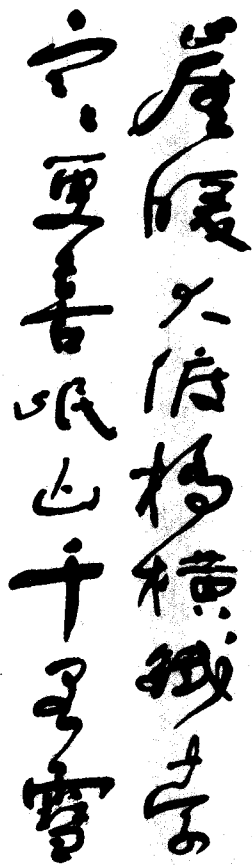 崖暖大渡橋横鐵索
寒更喜岷山千里雪